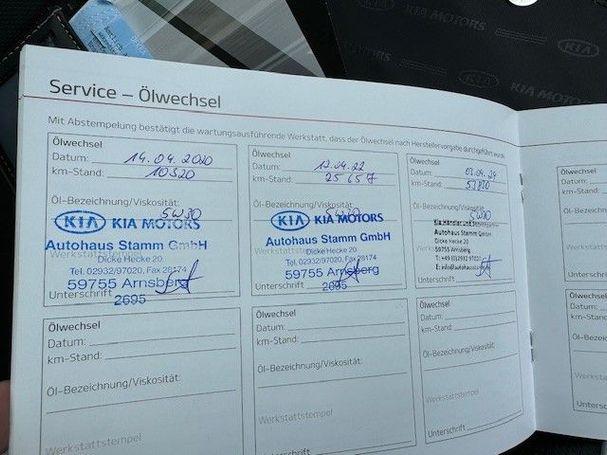 KIA MOTORS
KIA
KIA MOTORS
Service – Ölwechsel
Mit Abstempelung bestätigt die wartungsausführende Werkstatt, dass der Ölwechsel nach Herstellervorgabe durchgeführt wurde.
Ölwechsel
Datum: 14.04.2020
km-Stand: 10320
Öl-Bezeichnung/Viskosität:
5W30
KIA KIA MOTORS
Autohaus Stamm GmbH
Dicke Hecke 20
Tel. 02932/97020, Fax 28174
59755 Arnsberg
Unterschrift
2695
Ölwechsel
Datum: 12.04.22
km-Stand: 25657
Öl-Bezeichnung/Viskosität:
KIA KIA MOTORS
Autohaus Stamm GmbH
Dicke Hecke 20
Tel. 02932/97020, Fax 28174
59755 Arnsberg
Unterschrift
2695
Ölwechsel
Datum: 03.04.24
km-Stand:
Öl-Bezeichnung/Viskosität:
5W30
Autohaus Stamm GmbH
Dicke Hecke 20
59755 Arnsberg
Unterschrift
Ölwechsel
Datum:
km-Stand:
Öl-Bezeichnung/Viskosität:
Werkstattstempel
Ölwechsel
Datum:
km-Stand:
Öl-Bezeichnung/Viskosität:
Werkstattstempel
Ölwechsel
Datum:
km-Stand:
Öl-Bezeichnung/Viskosität:
Werkstattstempel
Unterschrift
Ölwechsel
Datum:
km-Stand:
Öl-Bezeichnung
Ölwechsel
Datum:
km-Stand:
Öl-Bezeichnung